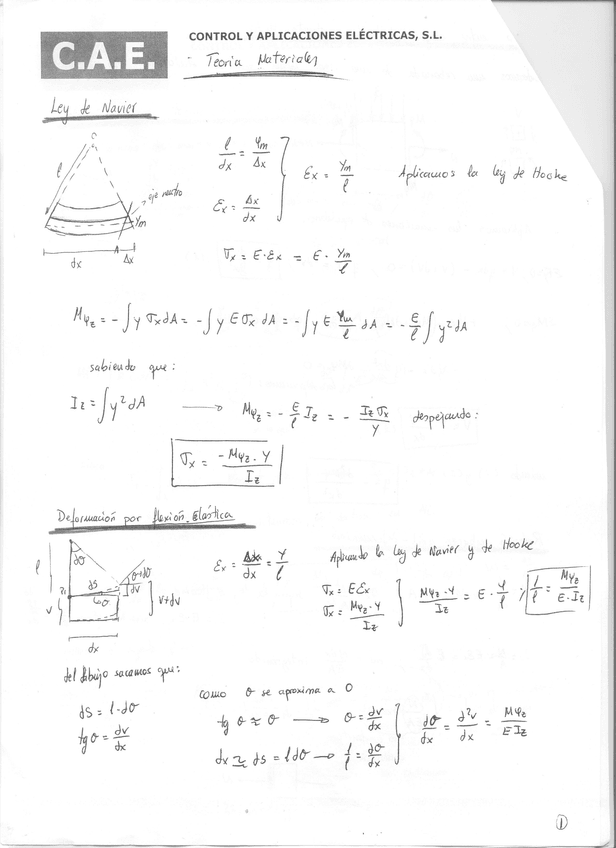 C.A.E.
CONTROL Y APLICACIONES ELÉCTRICAS, S.L.
- Teoria Materiales
Ley de Navier
l
eje neutro
Ym
A
dx Δx
l/dx = Ym/Δx
Ex = Δx/dx
Ex = Ym/l
Aplicamos la ley de Hooke
σx = E·Ex = E · Ym/l
Mψz = -∫y σx dA = -∫y E σx dA = -∫y E Ym/l dA = -E/l ∫y² dA
sabiendo que:
Iz = ∫y² dA → Mψz = -E/l Iz = - Iz σx/y despejando:
σx = -Mψz · y/Iz
Deformación por flexión Elástica
l
dθ
ds
θ
θ+dθ
dv
v
v+dv
dx
Ex = Δx/dx = y/l
Aplicando la Ley de Navier y de Hooke
σx = E Ex
σx = Mψz · y/Iz
Mψz · y/Iz = E · y/l ; 1/l = Mψz/E·Iz
del dibujo sacamos que:
ds = l·dθ
tg θ = dv/dx
como θ se aproxima a 0
tg θ ≈ θ → θ = dv/dx
dx ≃ ds = l dθ → 1/l = dθ/dx
dθ/dx = d²v/dx = Mψz/E Iz
1